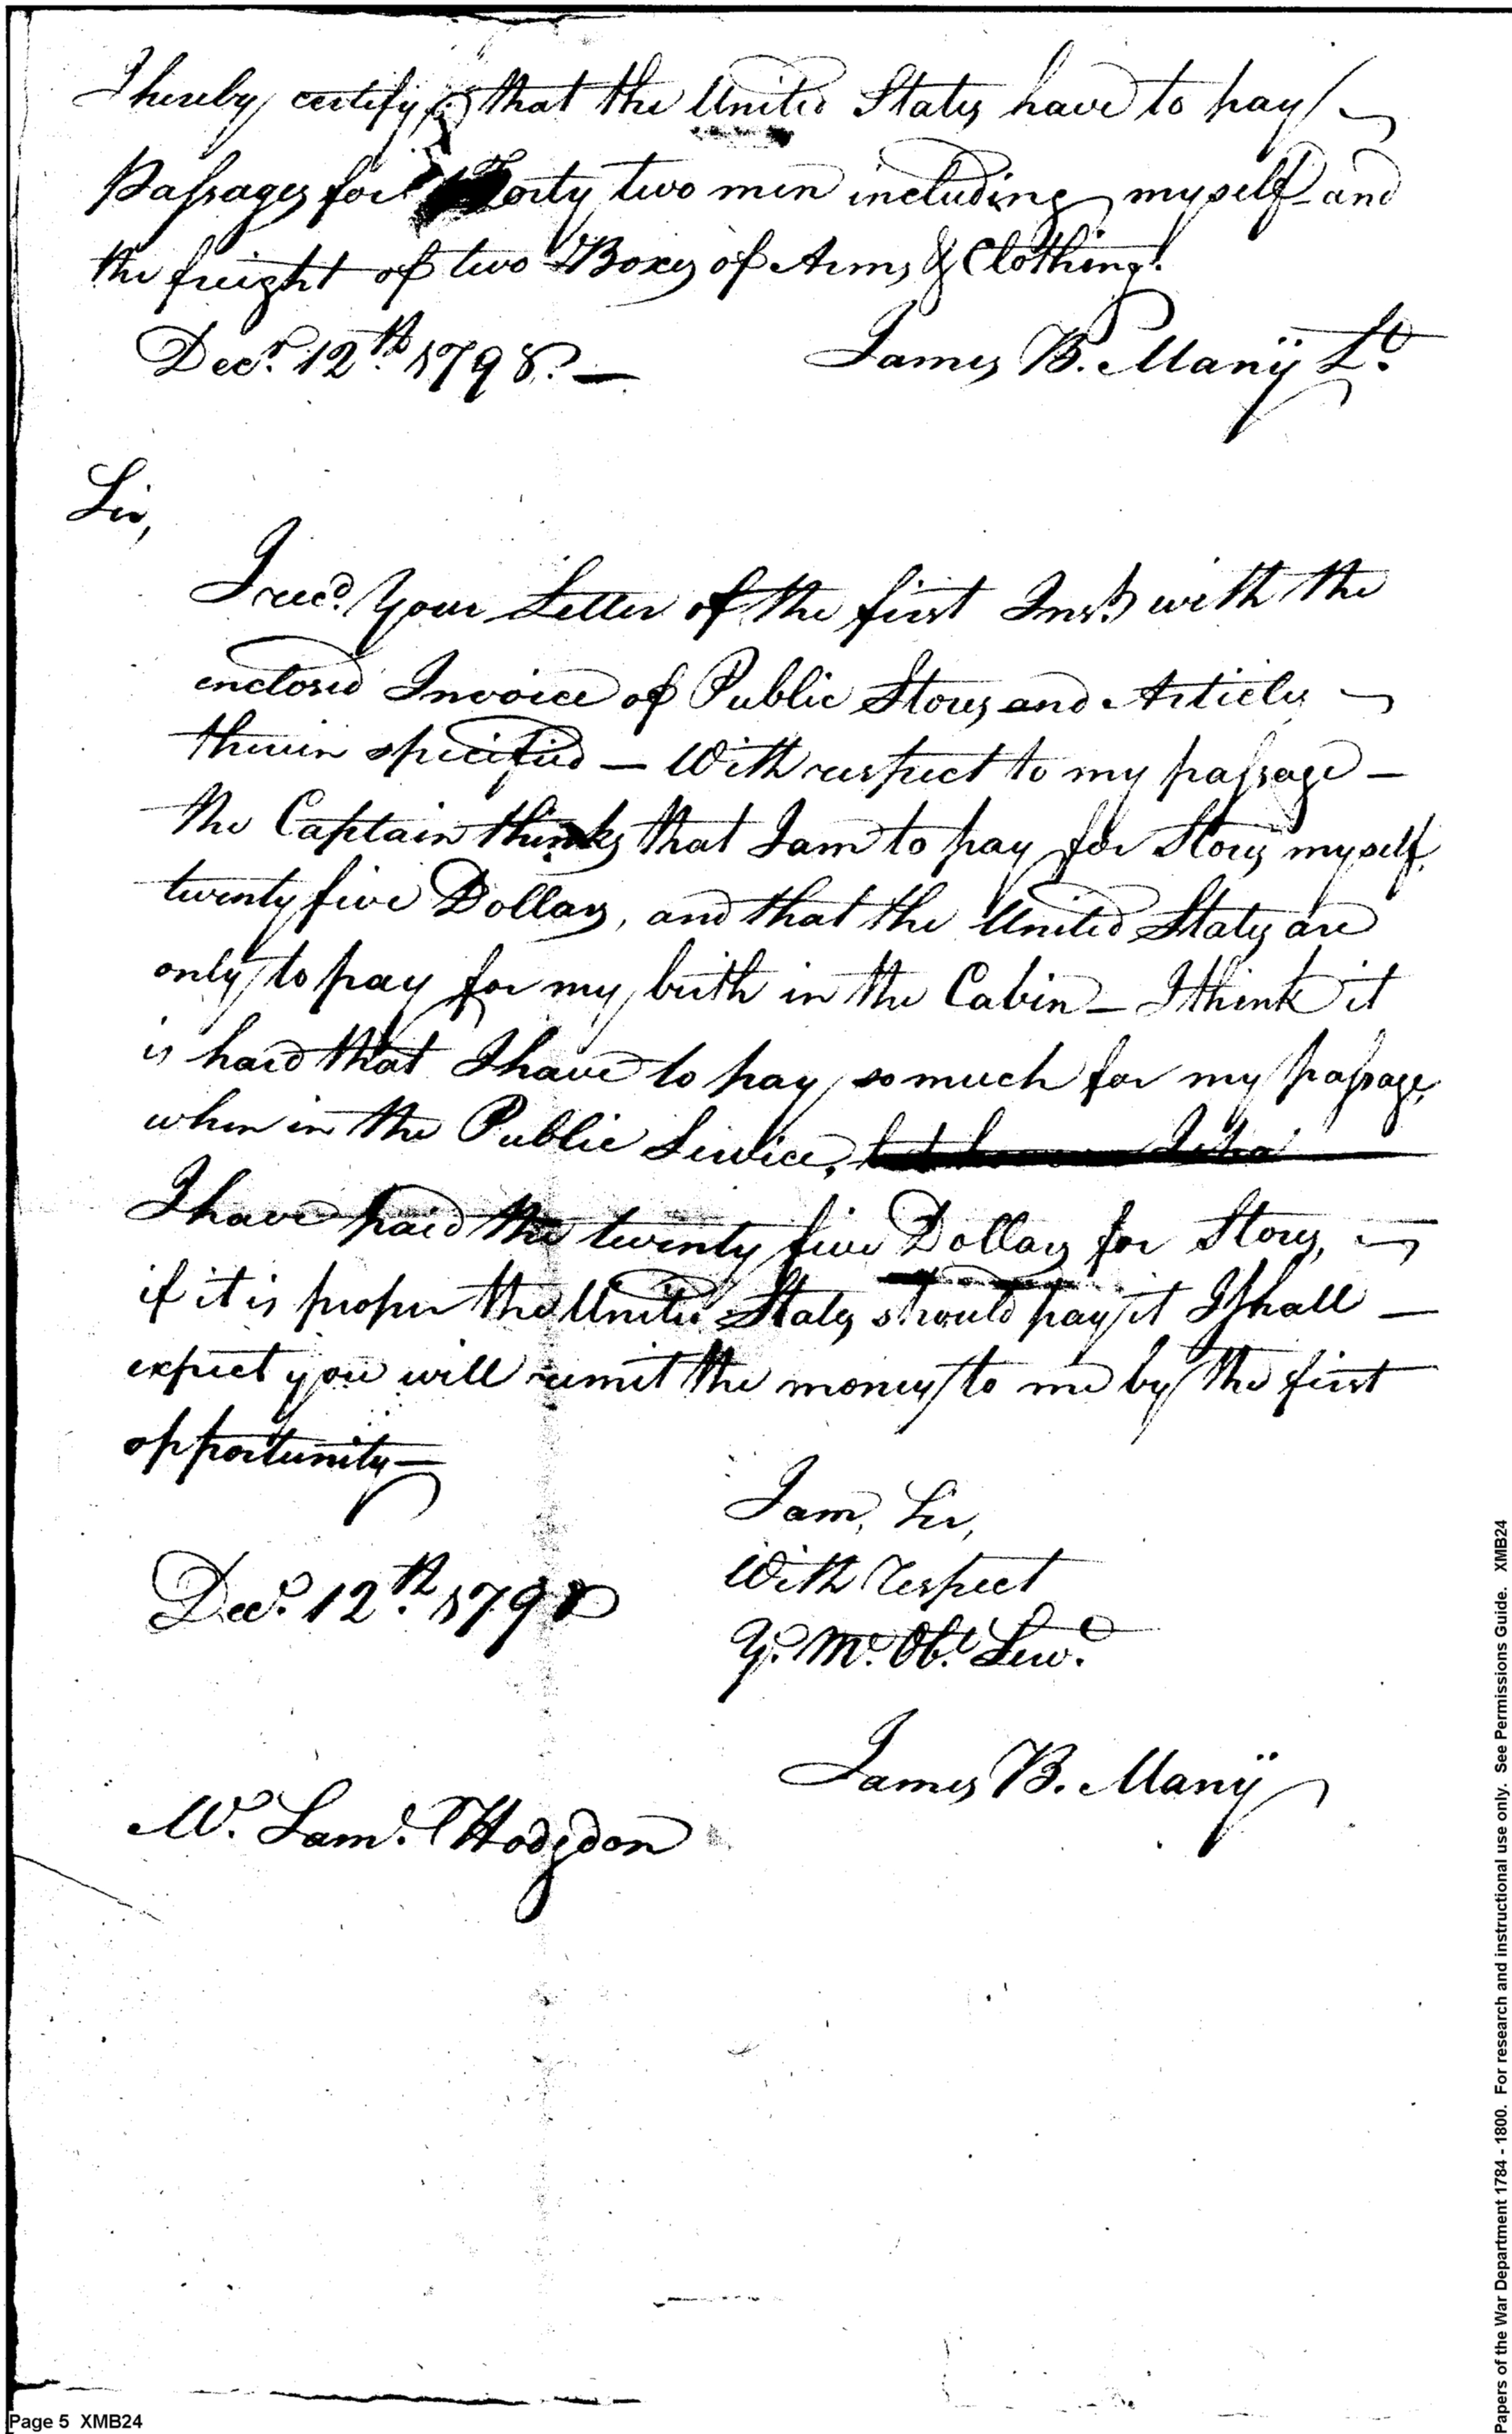 I hereby certify that the United States have to pay
Passages for Forty two men including myself and
the freight of two Boxes of Arms & Clothing.
Decr. 12th. 1798. —
James B. Manÿ Lt.
Sir,
I recd. Your Letter of the first Inst. with the
enclosed Invoice of Public Stores and Articles
therein specified — With respect to my passage —
the Captain thinks that I am to pay for Stores myself
twenty five Dollars, and that the United States are
only to pay for my birth in the Cabin — I think it
is hard that I have to pay so much for my passage,
when in the Public Service,
I have paid the twenty five Dollars for Stores,
if it is proper the United States should pay it I shall —
expect you will remit the money to me by the first
opportunity —
I am, Sir,
With respect
Dec. 12th. 1798
Y. M. Obt. Serv.
James B. Manÿ
Mr. Saml. Hodgdon
Page 5 XMB24
Papers of the War Department 1784 - 1800. For research and instructional use only. See Permissions Guide. XMB24